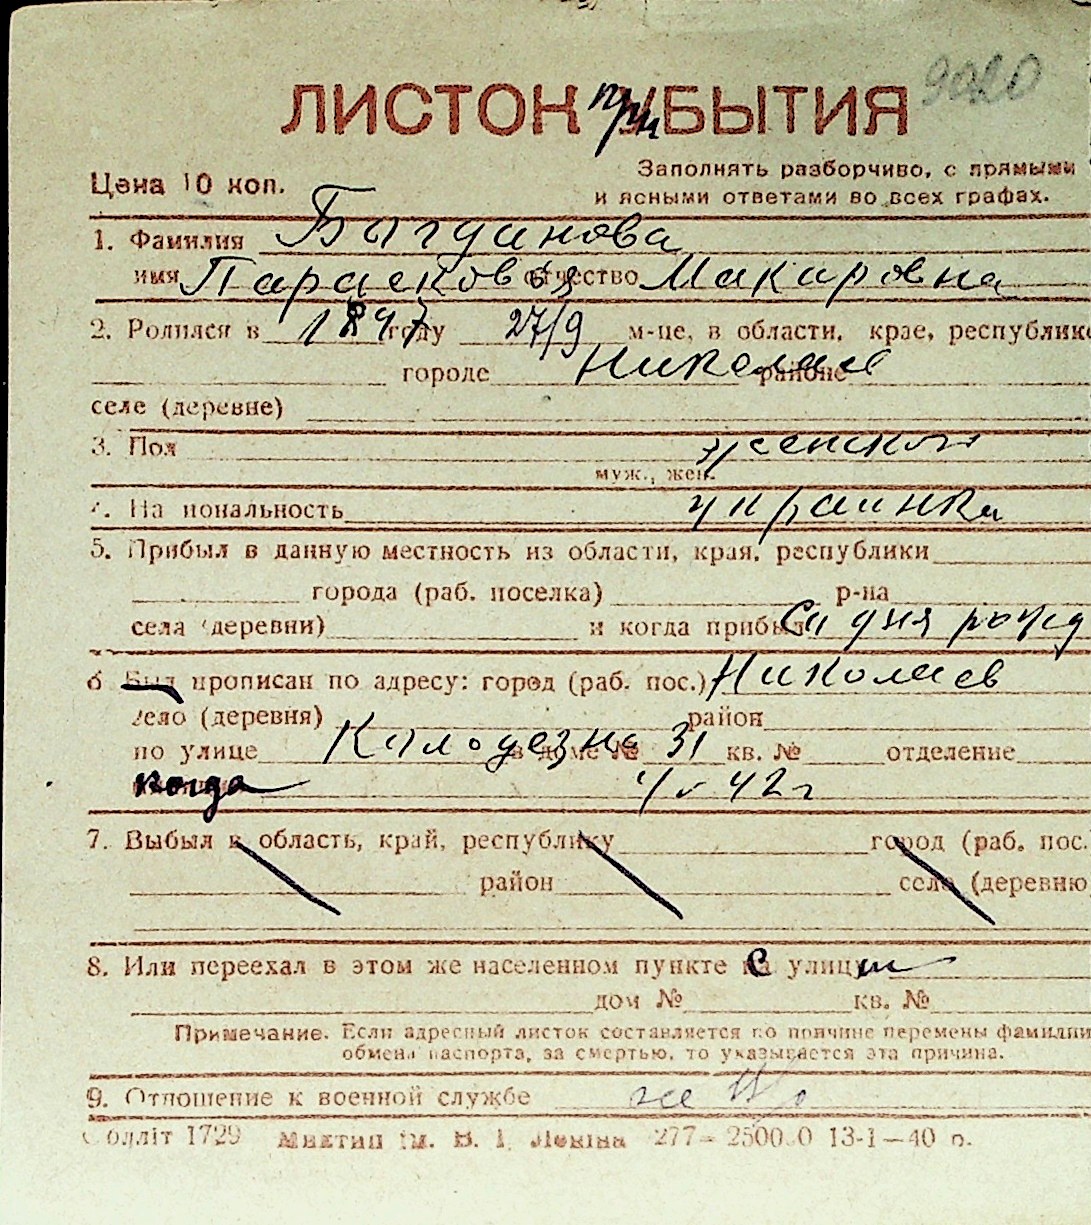 9020
ЛИСТОК при БЫТИЯ
Цена 10 коп.
Заполнять разборчиво, с прямыми
и ясными ответами во всех графах.
1. Фамилия Богданова
имя Парасковья отчество Макаровна
2. Родился в 1897 году 27/9 м-це, в области, крае, республике
городе Николаеве районе
селе (деревне)
3. Пол женский
муж., жен.
4. На иональность украинка
5. Прибыл в данную местность из области, края, республики
города (раб. поселка) р-на
села (деревни) и когда прибыл Са дня рожд
6 Был прописан по адресу: город (раб. пос.) Николаев
село (деревня) район
по улице Колодезна в доме № 31 кв. № отделение
когда 42 г
7. Выбыл в область, край, республику город (раб. пос.
район село (деревню
8. Или переехал в этом же населенном пункте с улицы
дом № кв. №
Примечание. Если адресный листок составляется по причине перемены фамилии
обмена паспорта, за смертью, то указывается эта причина.
9. Отношение к военной службе
Облліт 1729 ім. В. І. Леніна 277— 13-I—40 р.